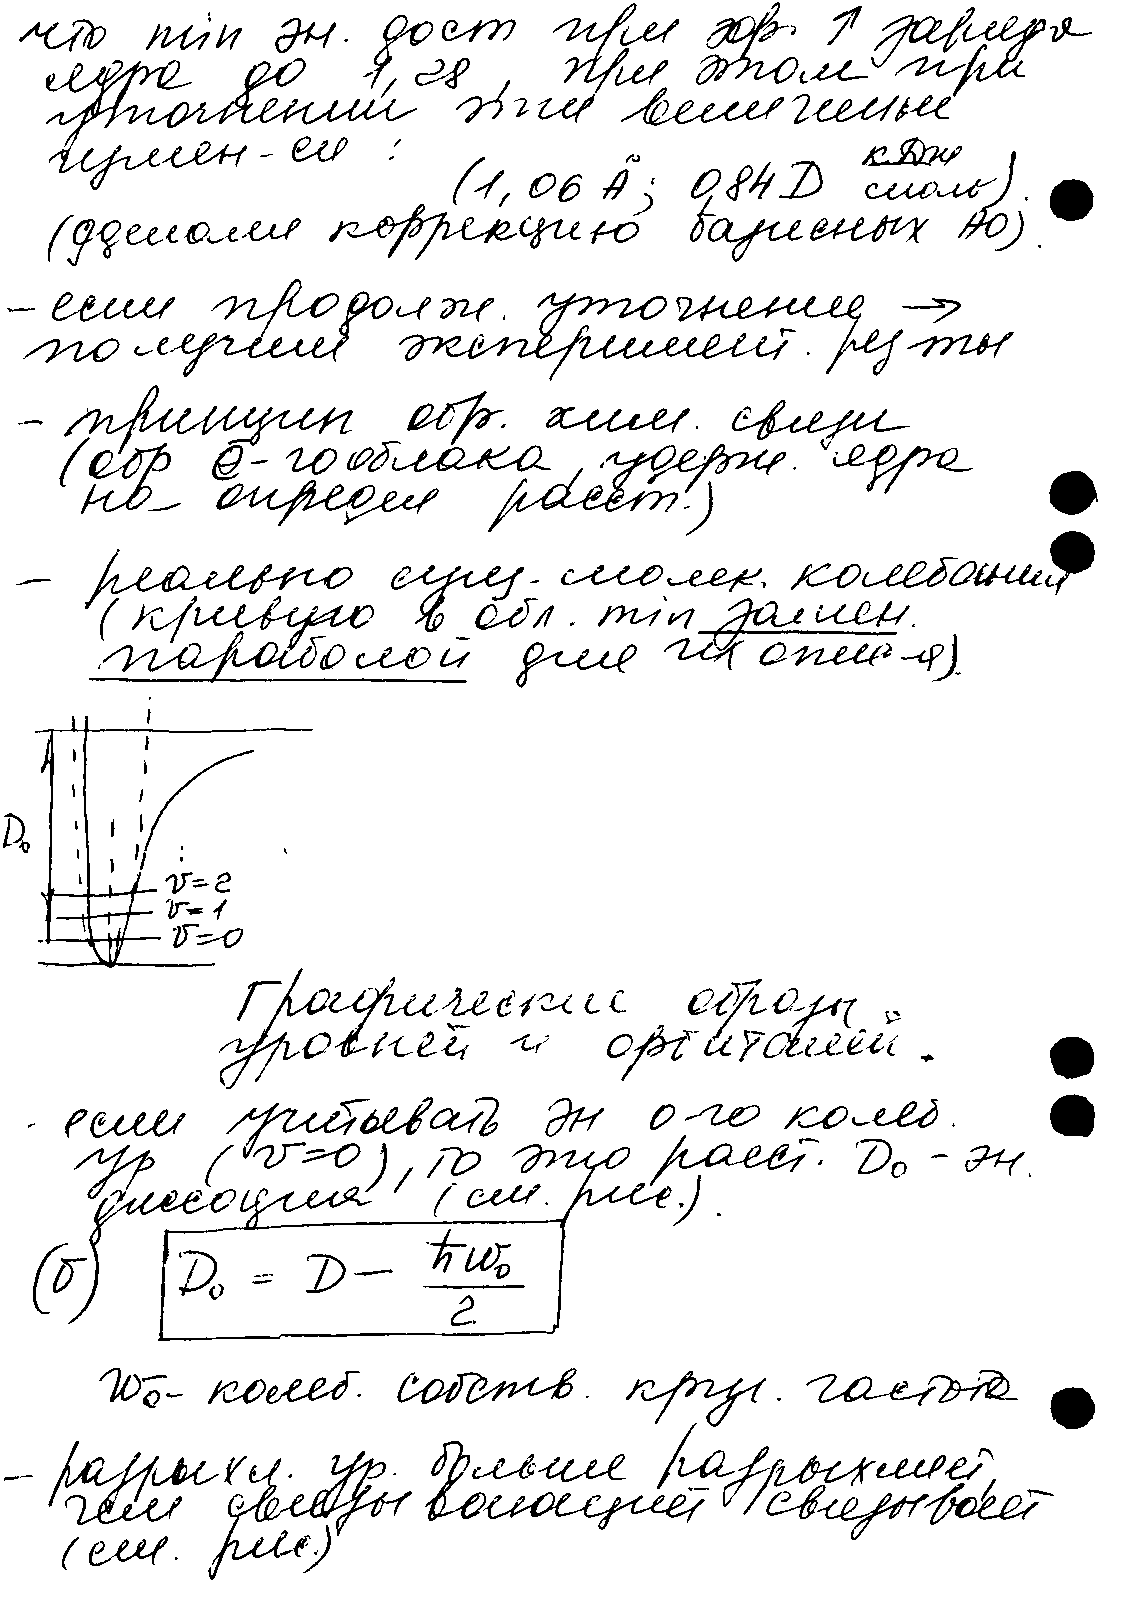 что min эн. дост при эфф. ↑ заряда
ядра до 1,28, при этом при
уточнении эти величины
измен-ся :
(1,06 Å; 0,84 D кДж/моль).
(сделали коррекцию базисных АО).
- если продолж. уточнение →
получим эксперимент. рез-ты
- принцип обр. хим. связи
(обр ē-го облака, удерж. ядра
на определ расст.)
- реально сущ-. молек. колебания
(кривую в обл. min замен.
параболой для их опис-я).
D₀
v=2
v=1
v=0
Графические образы
уровней и орбиталей.
если учитывать эн 0-го колеб.
ур (v=0), то это расст. D₀ - эн.
диссоция (см. рис.).
(б) D₀ = D - ħw₀/2
w₀- колеб. собств. круг. частота
- разрыхл. ур. больше разрыхляет,
чем связывающий связывает
(см. рис.)